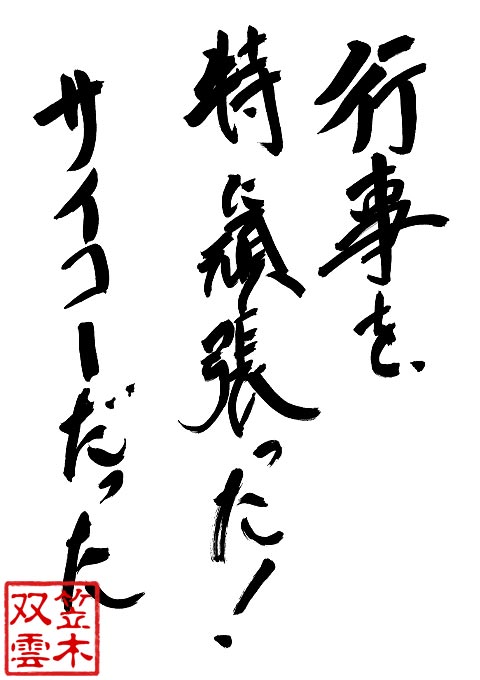 行事を、
特に頑張った！
サイコーだった
笠木
双雲